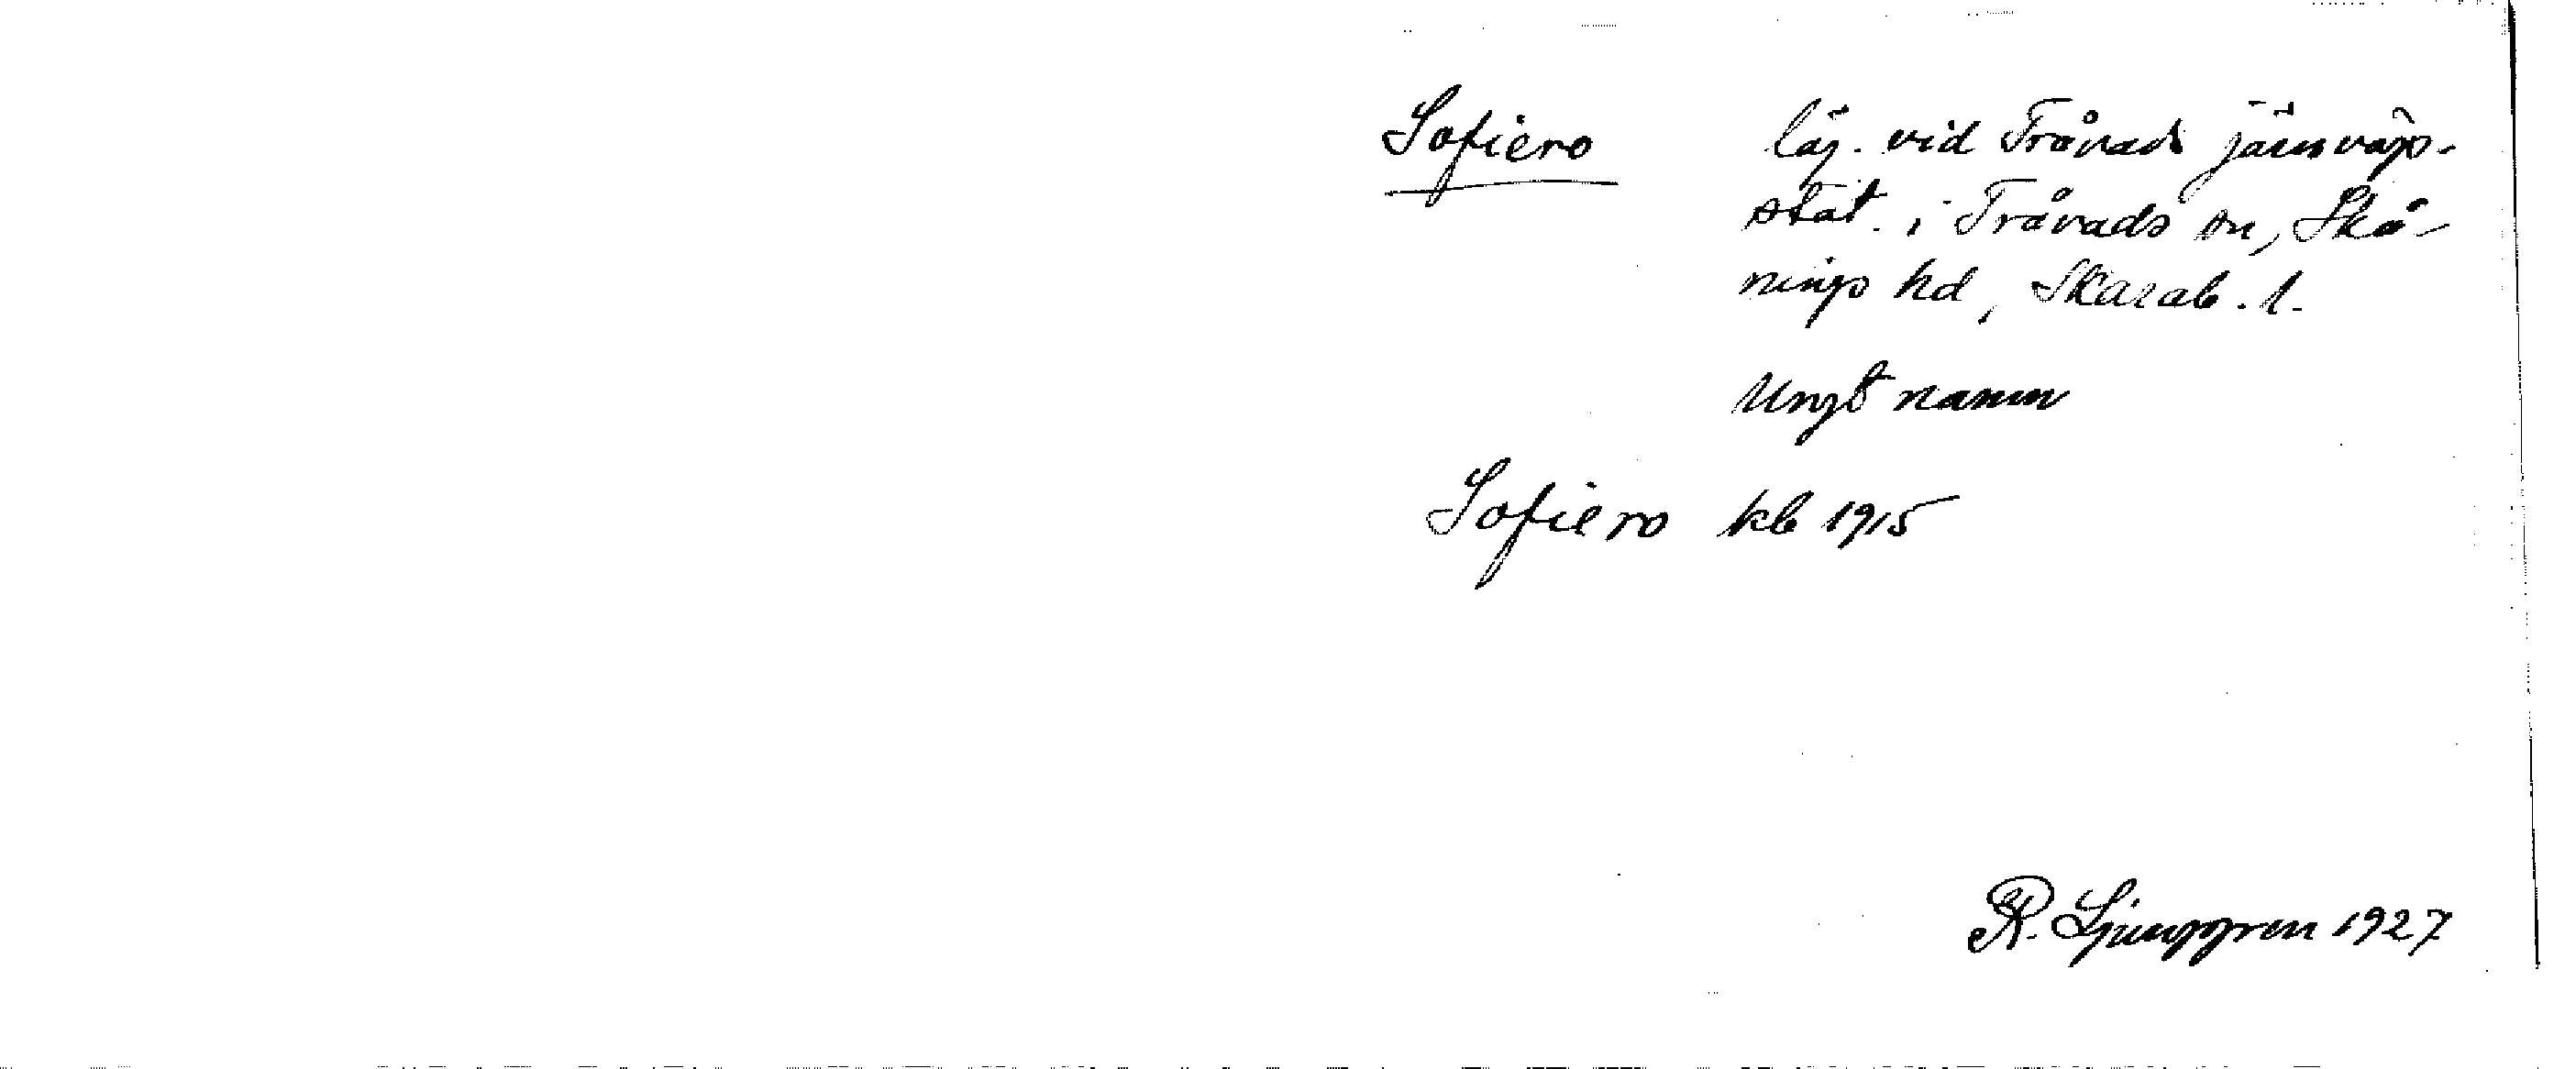 Sofiero läg. vid Tråvads järnvägs-
stat. i Tråvads sn, Skå-
nings hd, Skarab. l.
Ungt namn
Sofiero kb 1915
R. Ljunggren 1927